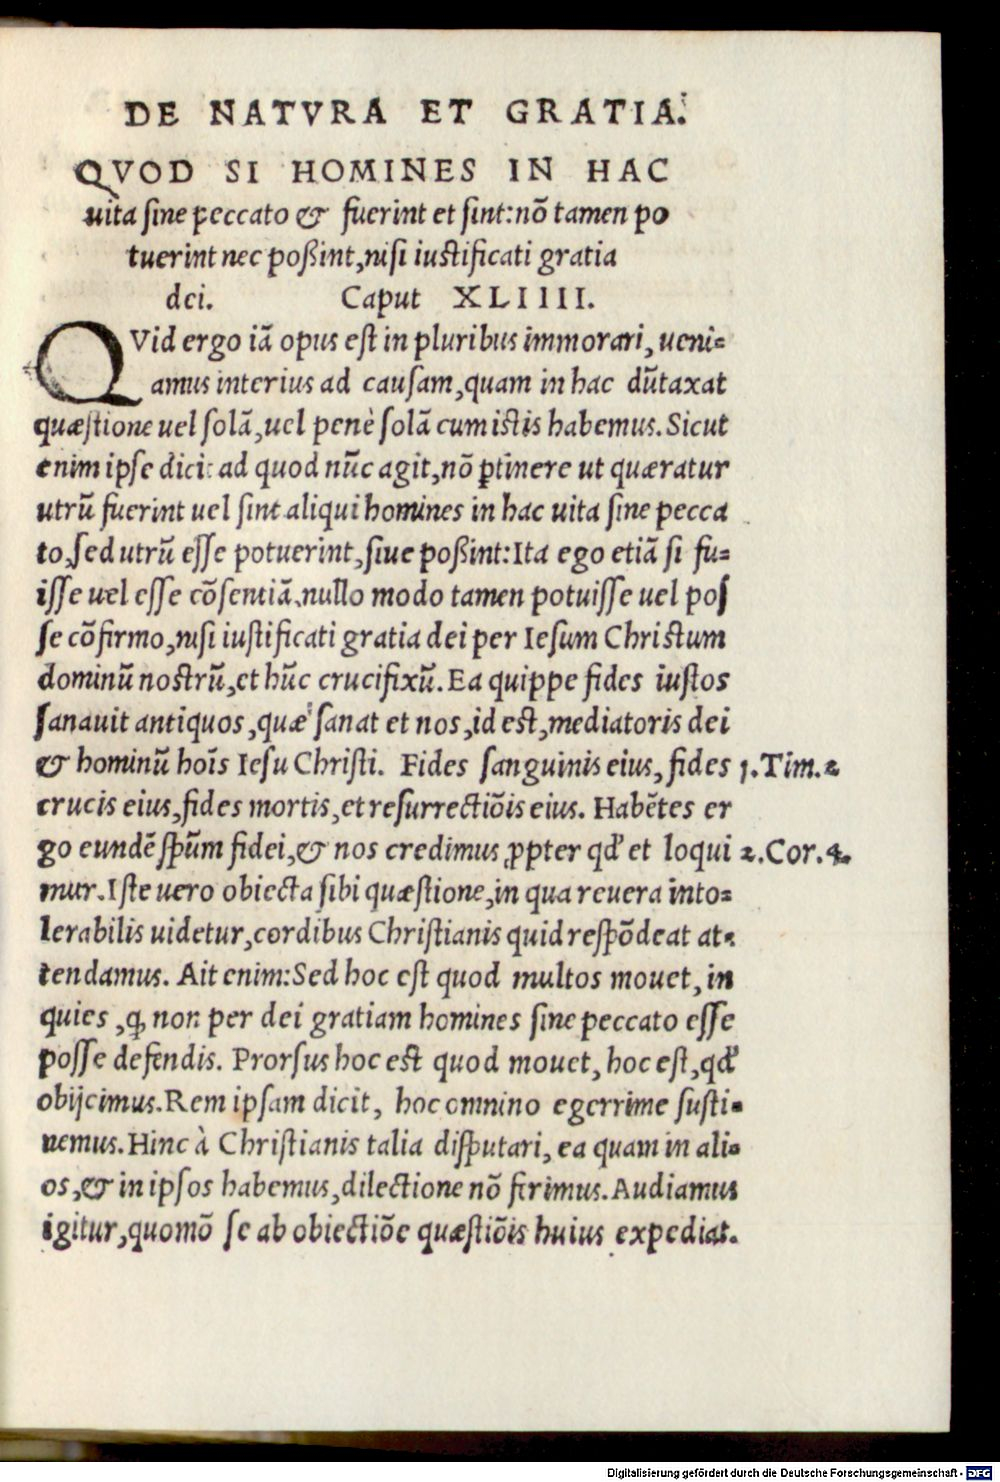 DE NATVRA ET GRATIA.
QVOD SI HOMINES IN HAC
uita sine peccato & fuerint et sint:nõ tamen po
tuerint nec poßint,nisi iustificati gratia
dei. Caput XLIIII.
QVid ergo iã opus est in pluribus immorari, ueni-
amus interius ad causam,quam in hac dũtaxat
quæstione uel solã,uel penè solã cum istis habemus. Sicut
enim ipse dicit ad quod nũc agit,nõ ꝑtinere ut quæratur
utrũ fuerint uel sint aliqui homines in hac uita sine pecca
to,sed utrũ esse potuerint,siue poßint:Ita ego etiã si fu-
isse uel esse cõsentiã,nullo modo tamen potuisse uel pos
se cõfirmo,nisi iustificati gratia dei per Iesum Christum
dominũ nostrũ,et hũc crucifixũ. Ea quippe fides iustos
sanauit antiquos,quæ sanat et nos,id est,mediatoris dei
& hominũ hoĩs Iesu Christi. Fides sanguinis eius, fides 1.Tim.2
crucis eius,fides mortis,et resurrectiõis eius. Habẽtes er
go eundẽ sp̃um fidei,& nos credimus ꝓpter qd' et loqui 2.Cor.4.
mur. Iste uero obiecta sibi quæstione,in qua reuera into-
lerabilis uidetur,cordibus Christianis quid respõdeat at-
tendamus. Ait enim:Sed hoc est quod multos mouet,in
quies ,ꝙ non per dei gratiam homines sine peccato esse
posse defendis. Prorsus hoc est quod mouet, hoc est,qd'
obijcimus. Rem ipsam dicit, hoc omnino egerrime susti-
nemus. Hinc à Christianis talia disputari, ea quam in ali-
os,& in ipsos habemus,dilectione nõ firimus. Audiamus
igitur,quomõ se ab obiectiõe quæstiõis huius expediat.
Digitalisierung gefördert durch die Deutsche Forschungsgemeinschaft - DFG